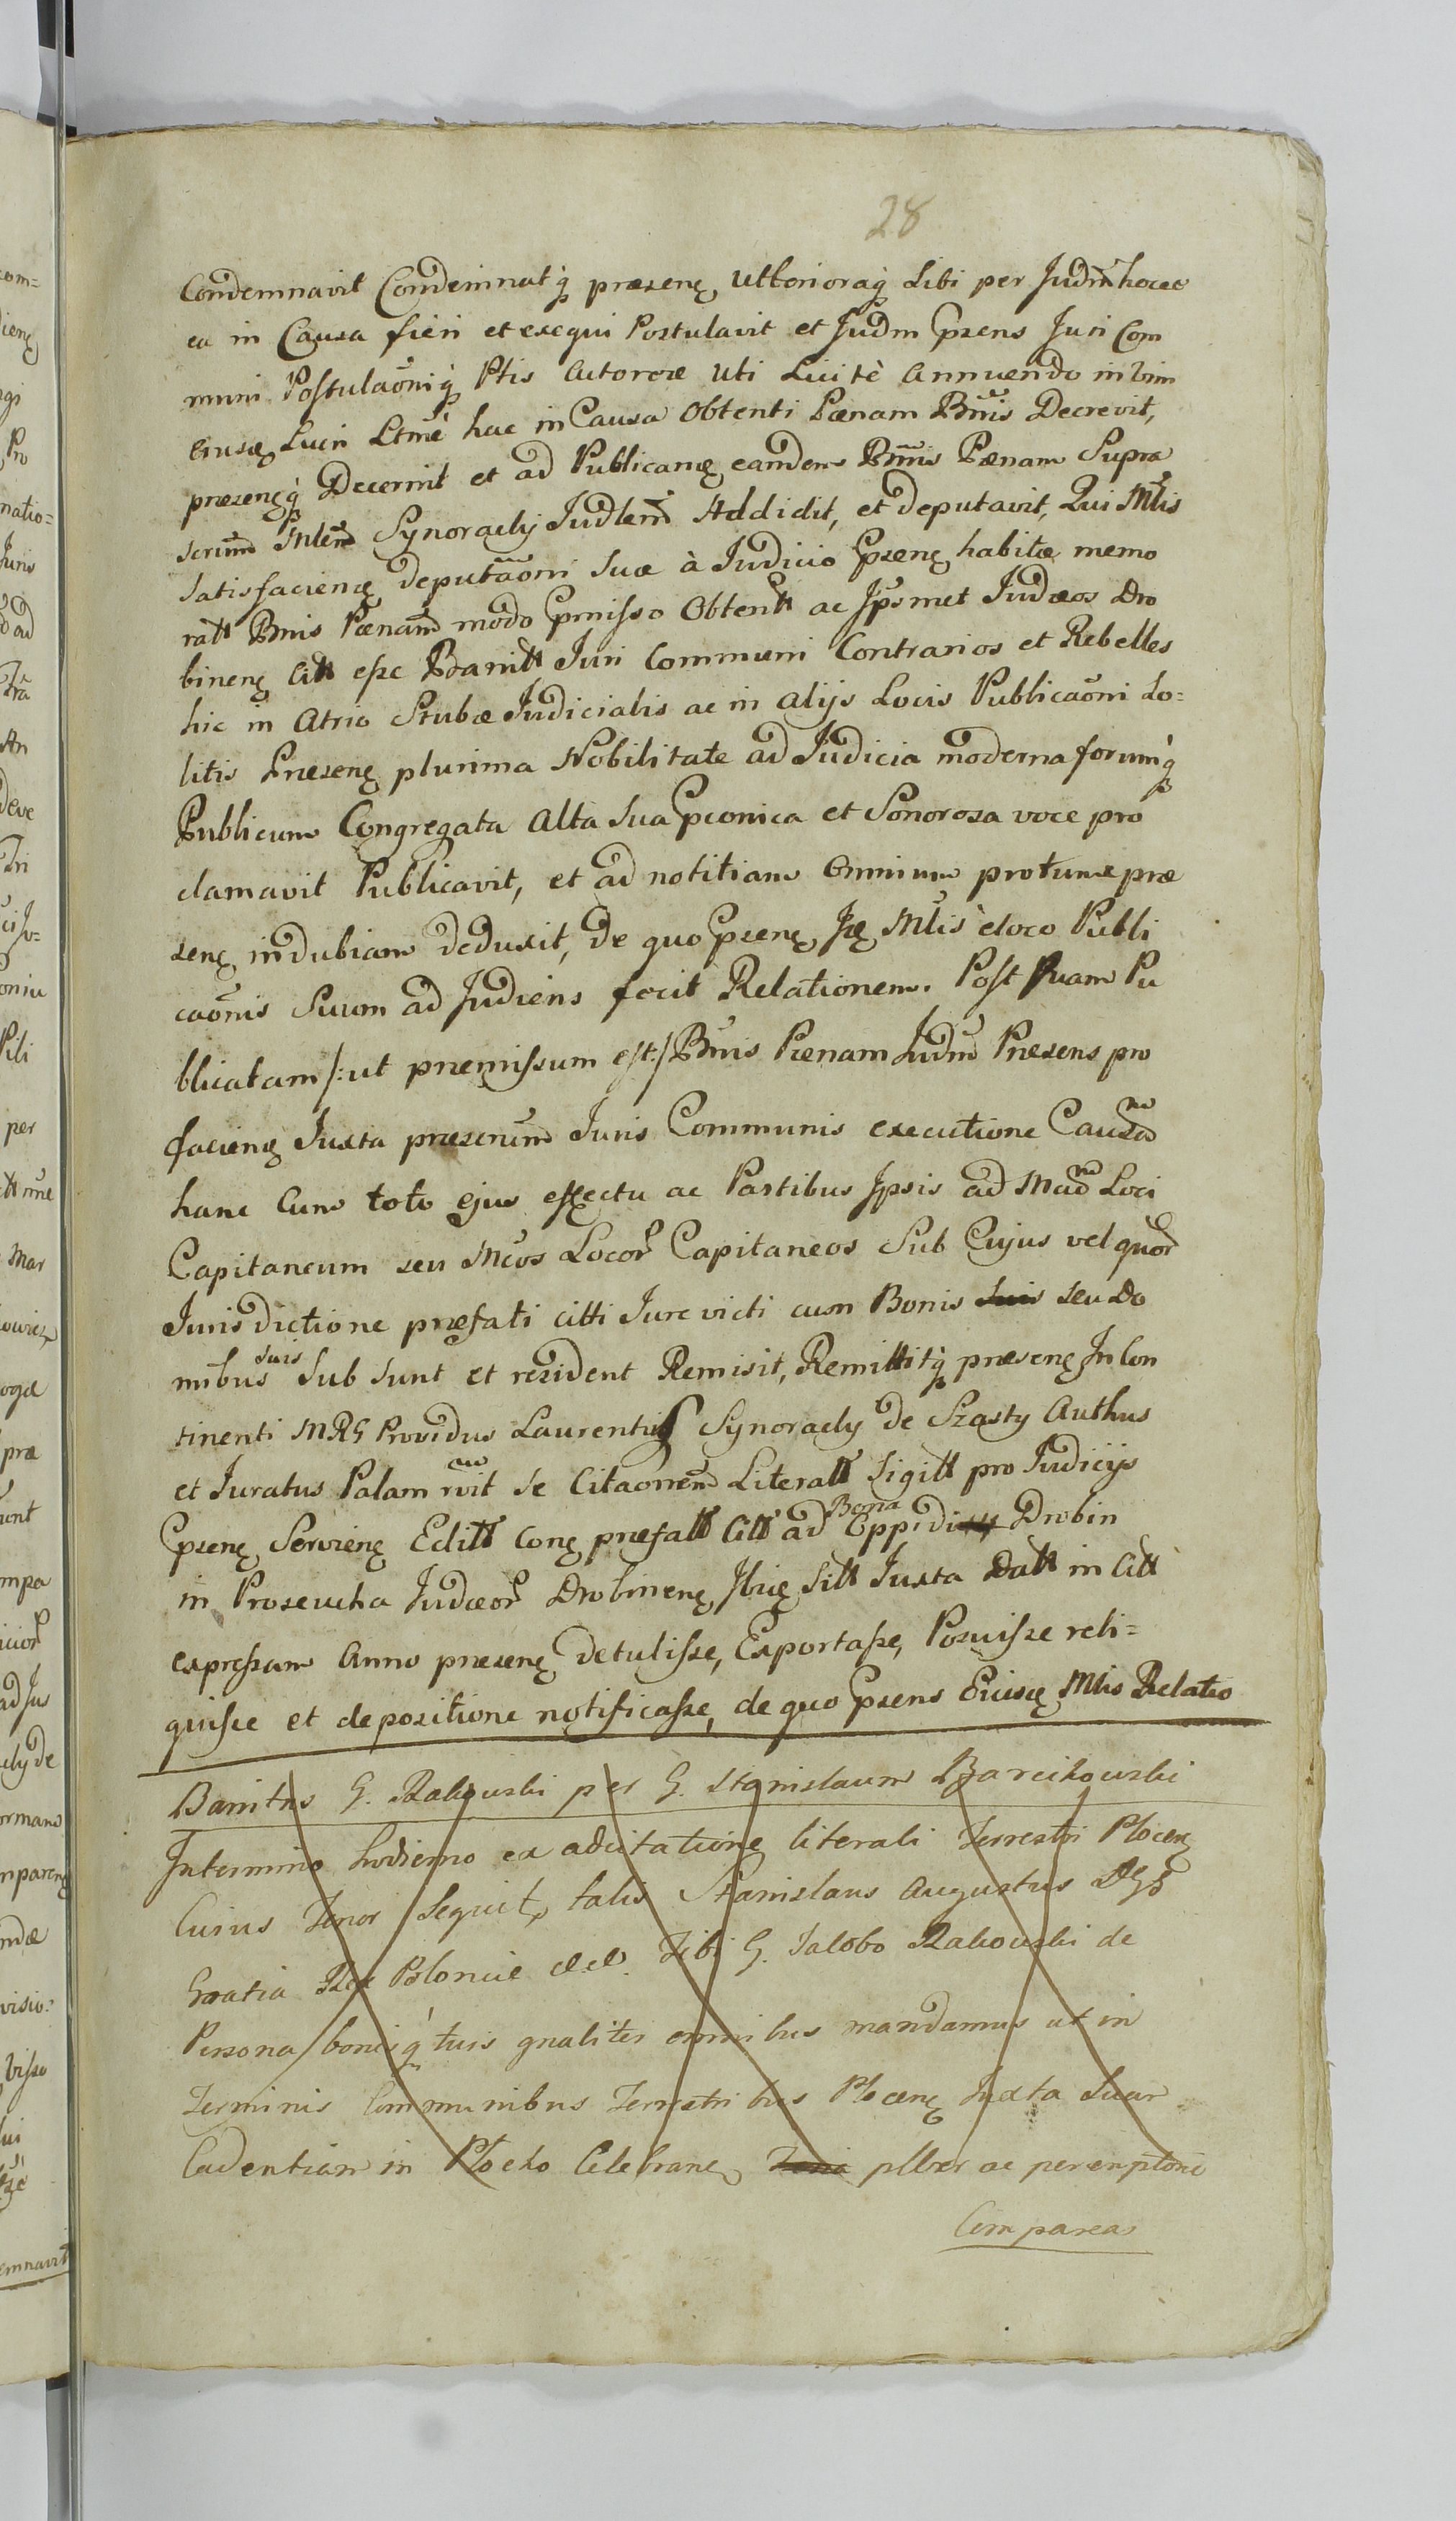 28
Condemnavit Condemnatq́ præsenę Ulterioraq́ Sibi per Judm̃ hocce
ea in Causa fieri et exequi Postulavit et Judm Ppsens Juri Com
muni Postulaõniq́ Ptis Actoreæ Uti Licitè Annuendo in Vim
Lucri Ltmẽ hac in Causa Obtenti Pænam Bm̃is Decrevit,
præsenęq́ Decernit et ad Publicanę eandem Bm̃is Pænam Supra
Synoracky Judlem̃ Addidit, et deputavit, Qui Mlĩs
Satisfacienę deputãoni Suæ à Judicio Ppsenę habitæ memo
ratt Bnis Pænam̃ modo Ppmisso Obtentt ac Jpsmet Judæos Dro
binenę Citt esse Banitt Juri Communi Contrarios et Rebelles
hic in Atrio Stubæ Judicialis ac in alijs Locis Publicaõni So=
litis Præsenę plurima Nobilitate ad Judicia moderna forumq́
Publicum Congregata Alta Sua Ppconica et Sonorosa voce pro
clamavit Publicavit, et ad notitiam Omnium protunc præ
senę indubiam deduxit, de quo Ppsenę Mlĩs è loco Publi
caõnis Suum ad Judiens fecit Relationem. Post Quam Pu
blicatam /: ut præmissum est :/ Bm̃is Pænam Judm̃ Præsens pro
facienę Juxta præscrum̃ Juris Communis executione Causam̃
hanc Cum toto ejus effectu ac Partibus Jpsis ad Mcum̃ Loci
Capitaneum seu Mc̃os Locor Capitaneos Sub Cujus vel quor
Jurisdictione præfati citti Jure victi cum Bonis suis seu Do
mibus suis Sub sunt et resident Remisit, Remittitq́ præsenę In Con
tinenti MRG Providus Laurentius Synoracky de Szasty Authus
et Juratus Palam rvit Se Citaonem̃ Literatt Sigitt pro Judicijs
Ppsenę Servienę Editt Conę præfatt Citt ad Bona Oppidi Drobin
in Proseucha Judæor Drobinenę Jbię Sitt Juxta Datt in Citt
expressam Anno præsenę detulisse, Exportasse, Posuisse reli=
quisse et de positione notificasse, de quo Ppsens Ejusdę Mlis Relatio
Banitus G. Rakowski per G. Stanislaum Barcikowski
In termino hodierno ex adcitatione literali Terrestri Plocenę
Cuius Tenor Sequitr talis Stanislaus Augustus Dei
Gratia Rex Poloniæ Tibi G. Jacobo Rakowski de
Persona bonisq́ tuis gnaliter omnibus mandamus ut in
Terminis Communibus Terrestribus Plocenę Juxta Suam
Cadentiam in Plocko Celebranę ac peremptorie
Compareas